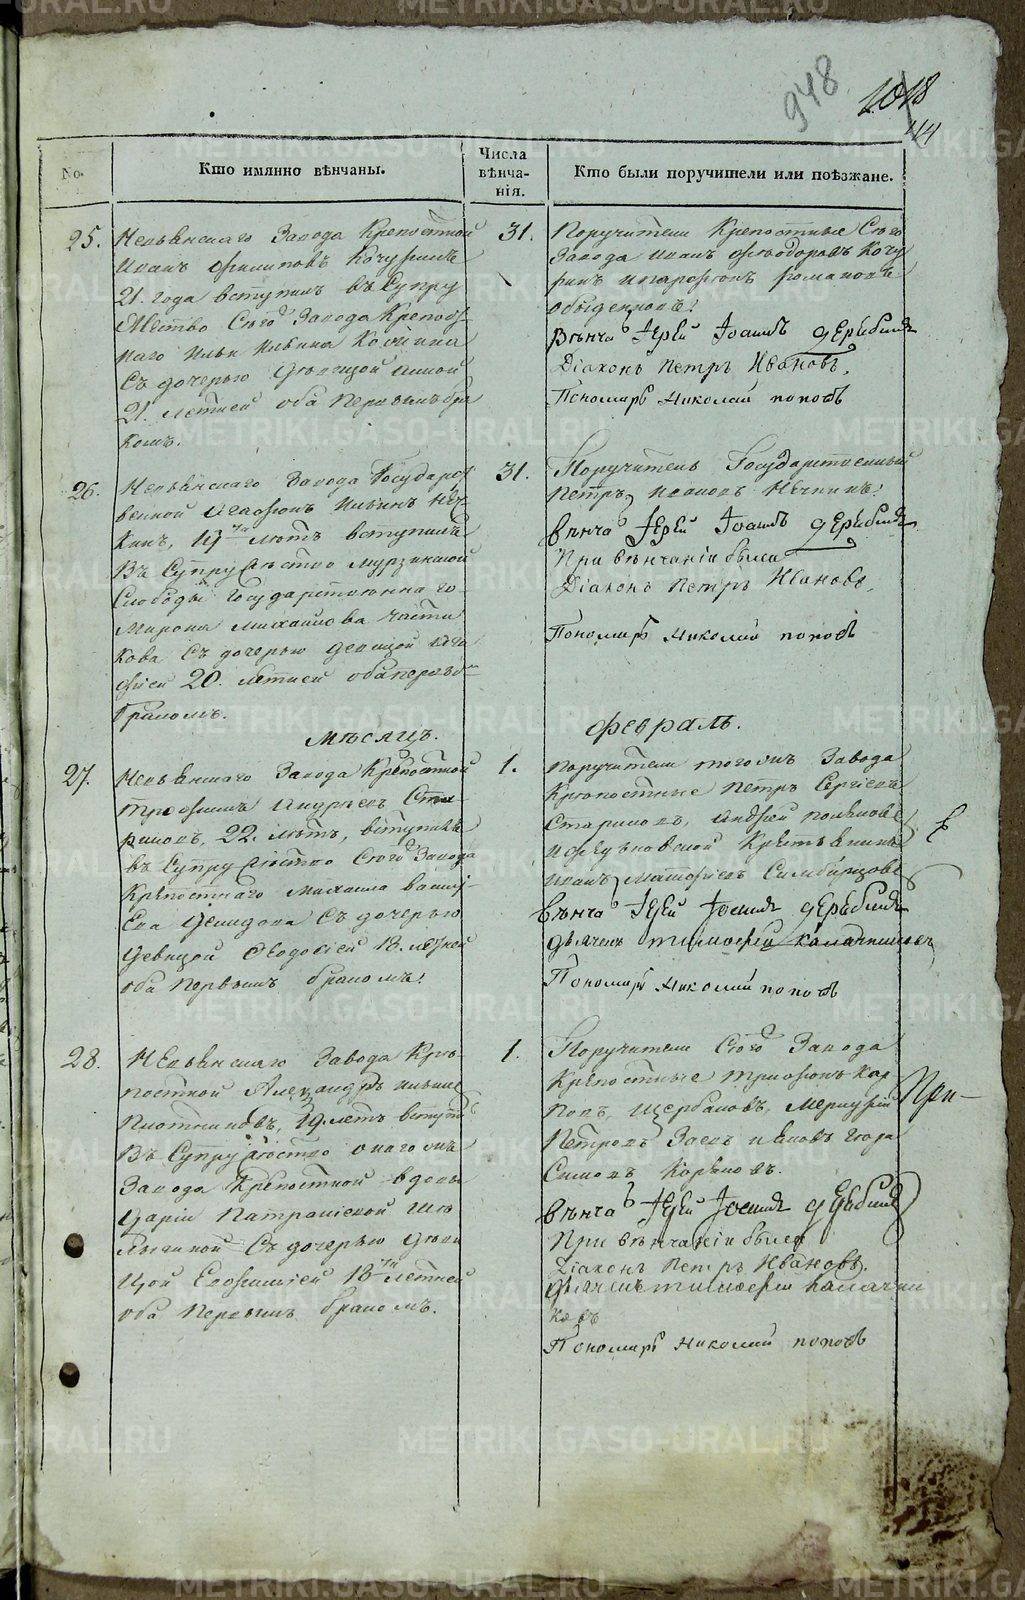 948
1018
414
No.
Кто имянно вѣнчаны.
Числа вѣнча-
нія.
Кто были поручители или поѣзжане.
25.
Невьянскаго Завода Крепостной
Иванъ Филиповъ Кочуринъ
21. года вступилъ въ Супру
жество Сего Завода Крепост-
наго Ильи Ильина
Съ дочерью девицой Анной
21. летней оба Первымъ бра
комъ.
31.
Поручители Крепостные Сего
Завода Иванъ Феодоровъ Кочу
ринъ и Парфенъ Романовъ
Обыденновъ.
Вѣнча Іерей Іоаннъ Дерябинъ
Діаконъ Петръ Ивановъ.
Пономарь Николай Поповъ
26.
Невьянскаго Завода Государст
венной Агафонъ Ильинъ Неч
кинъ, 19ти лѣтъ вступилъ
Въ Супружество Мурзинской
Слободы Государственнаго
Мирона Михайлова
кова Съ дочерью девицой Ага
фіей 20. летней оба первымъ
бракомъ.
31.
Поручитель Государственный
Петръ Ивановъ Нечкинъ.
Вѣнча Іерей Іоаннъ Дерябинъ
При вѣнчаніи были
Діаконъ Петръ Ивановъ.
Пономарь Николай Поповъ
Мѣсяцъ.
Февраль.
27.
Невьянскаго Завода Крепостной
Трофимъ Андреевъ Ста-
риковъ, 22. лѣтъ, вступилъ
въ Супружество Сего Завода
Крепостнаго Михаила Василь-
ева Демидова Съ дочерью
Девицой Феодосіей 18. летней
оба Первымъ бракомъ.
1.
Поручители тогожъ Завода
Крепостные Петръ Сергѣевъ
Стариковъ, Андрей Поляковъ
и Крестьянинъ
Иванъ Матфѣевъ Симбирцовъ
Вѣнча Іерей Іоаннъ Дерябинъ
Дьячекъ Тимофей Калачниковъ
Пономарь Николай Поповъ
28.
Невьянскаго Завода Кре-
постной Александръ Ильинъ
Плотниковъ, 19. летъ вступи
Въ Супружество онагожъ
Завода Крепостной вдовы
Дарьи Патракіевой
Съ дочерью Деви
цой Евфиміей 18ти летней
оба Первымъ бракомъ.
1.
Поручители Сего Завода
Крепостные Трифонъ Кар-
повъ Щербаковъ, Меркурій
Петровъ Заевъ и Яковъ Его
Симовъ Коряковъ.
Вѣнча Іерей Іоаннъ Дерябинъ
При вѣнчаніи были
Діаконъ Петръ Ивановъ.
Дьячекъ Тимофей Калачни
ковъ
Пономарь Николай Поповъ
При-
METRIKI.GASO-URAL.RU